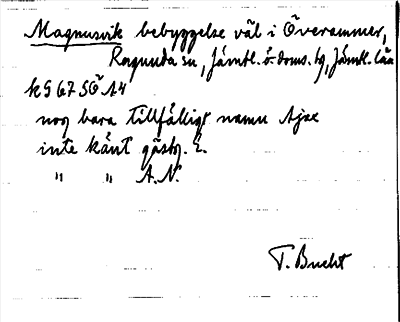 Magnusvik bebyggelse väl i Överammer,
Ragunda sn, Jämtl. ö. doms. hg, Jämtl. län
kG 6750 14
nog bara tillfälligt namn
inte känt gästg. E.
" " A.N.
T. Bucht